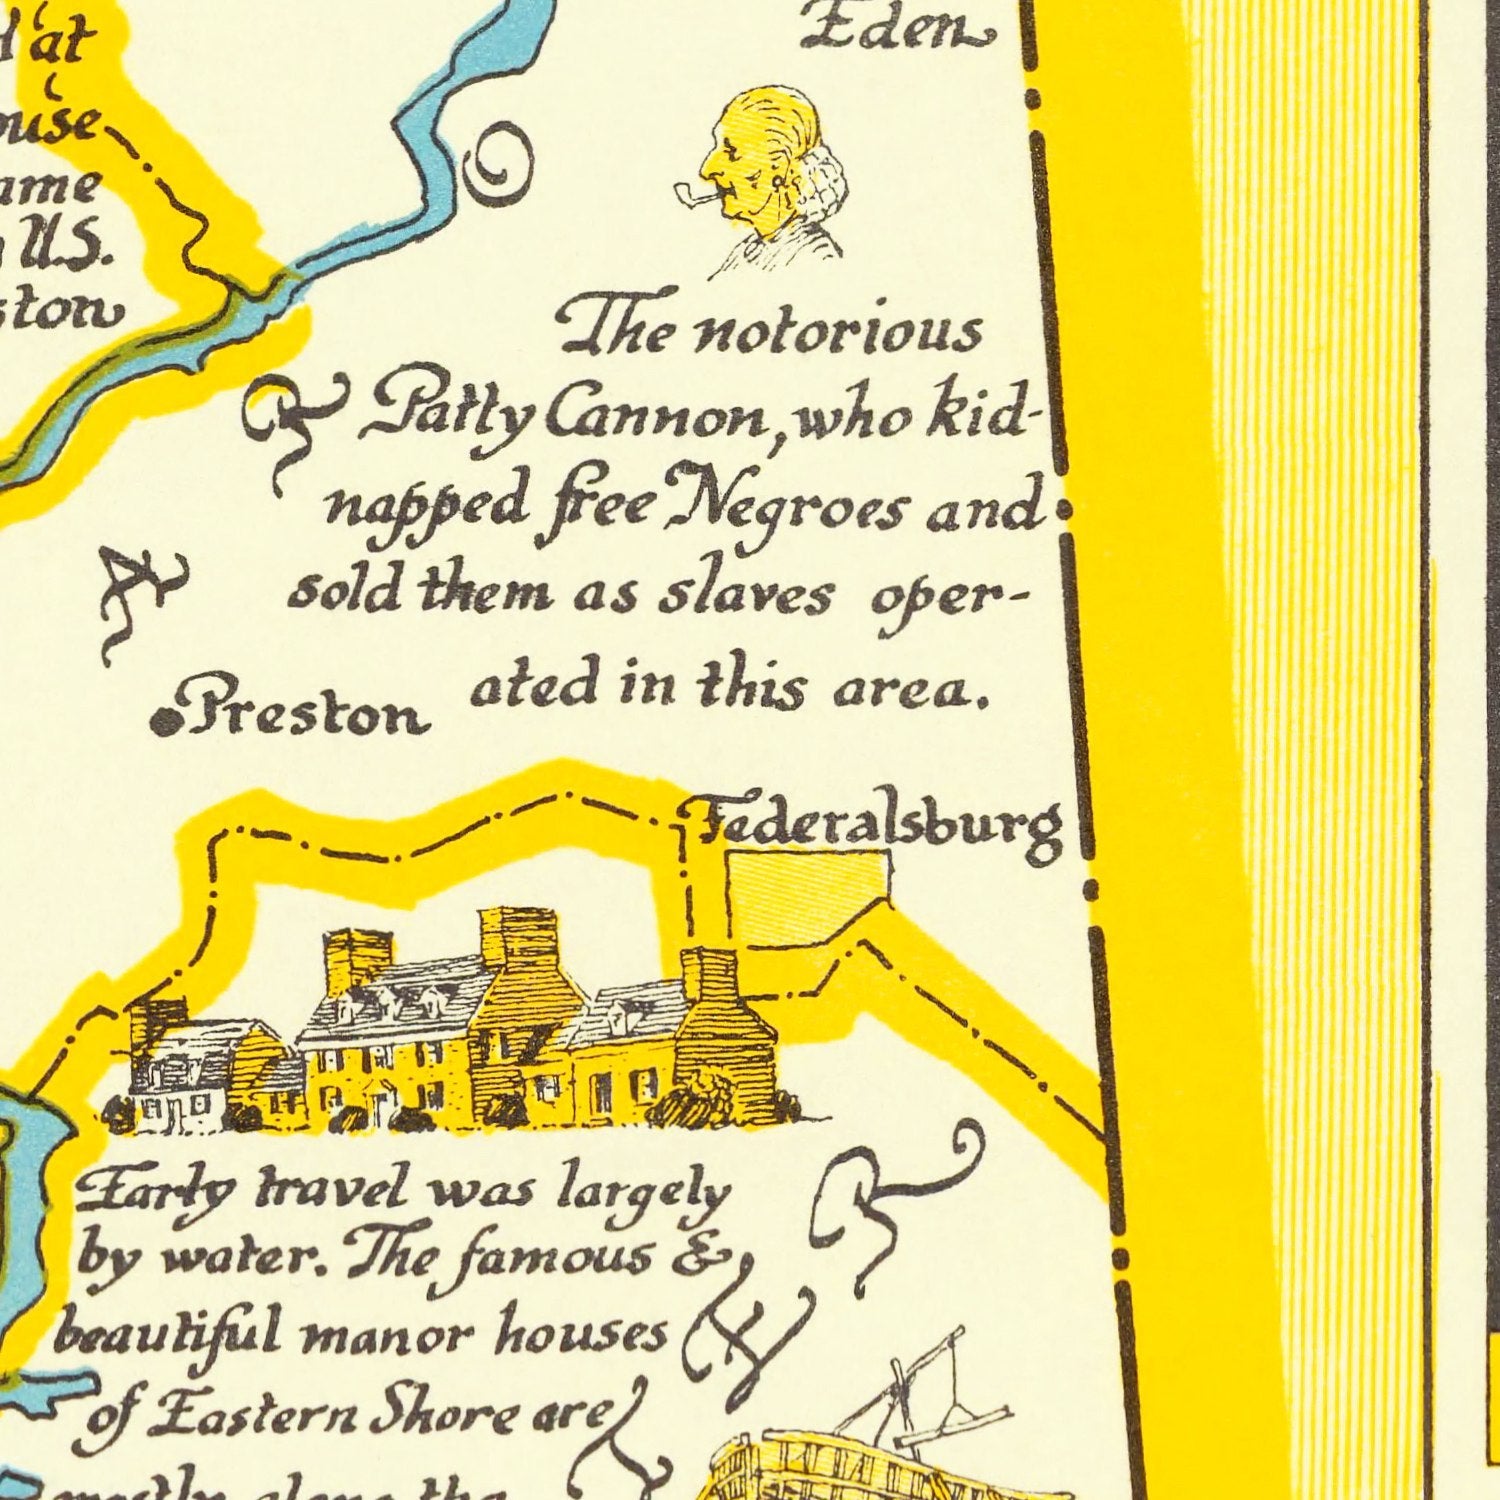 at
Eden
ouse
ame
U.S.
ston
The notorious
Patty Cannon, who kid-
napped free Negroes and
sold them as slaves oper-
ated in this area.
Preston
Federalsburg
Early travel was largely
by water. The famous &
beautiful manor houses
of Eastern Shore are
mostly along the
O
R
A
R
E